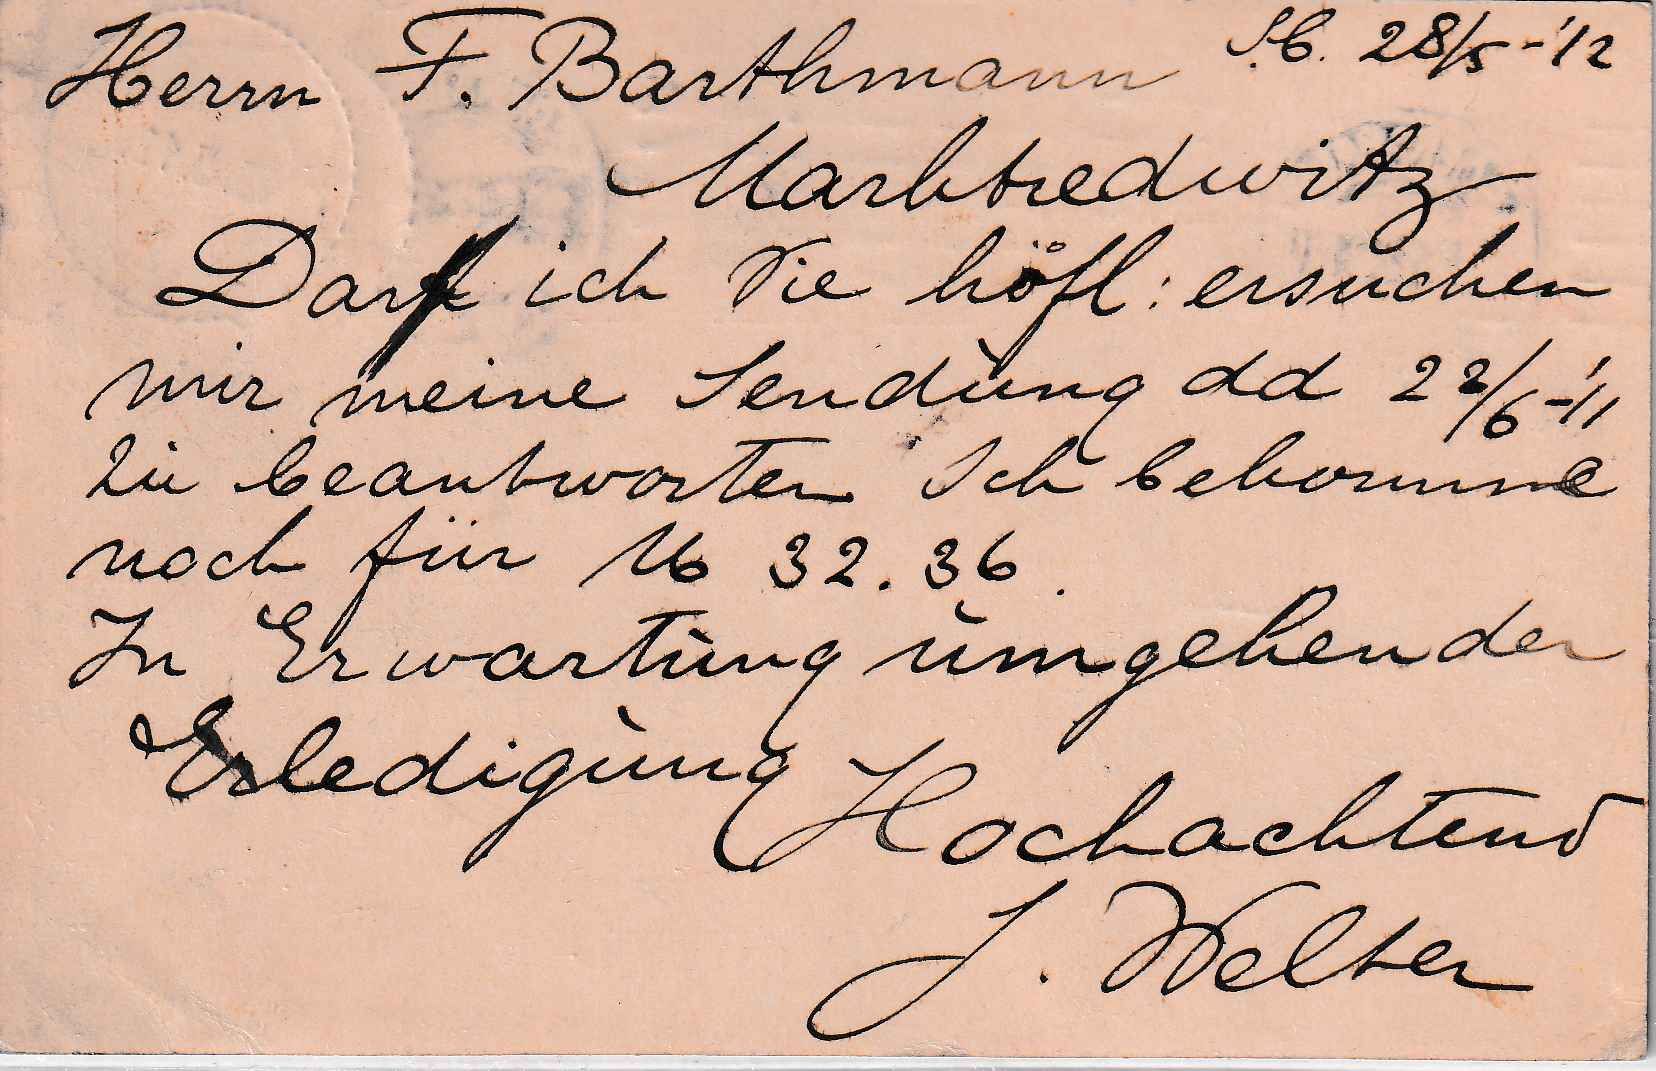 Herrn F. Barthmann St. 28/5-'12
Marktredwitz
Darf ich Sie höfl: ersuchen
mir meine Sendung dd 22/6-'11
zu beantworten Ich bekomme
noch für M 32.36.
In Erwartung umgehender
Erledigung
Hochachtend
J. Welter